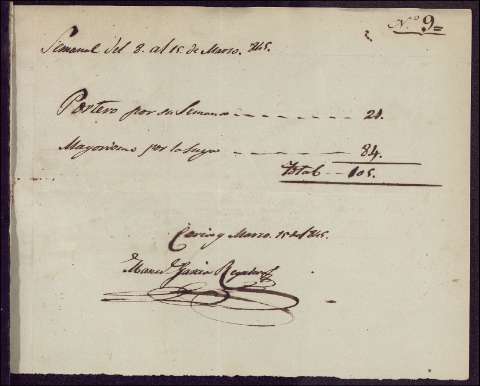 N.º 9=
Semanal del 8. al 15 de Marzo. 845.
Portero por su Semana 21.
Mayordomo por la suya 84.
Total 105.
y Marzo. 15 de 1845.
Manu.l Garcia